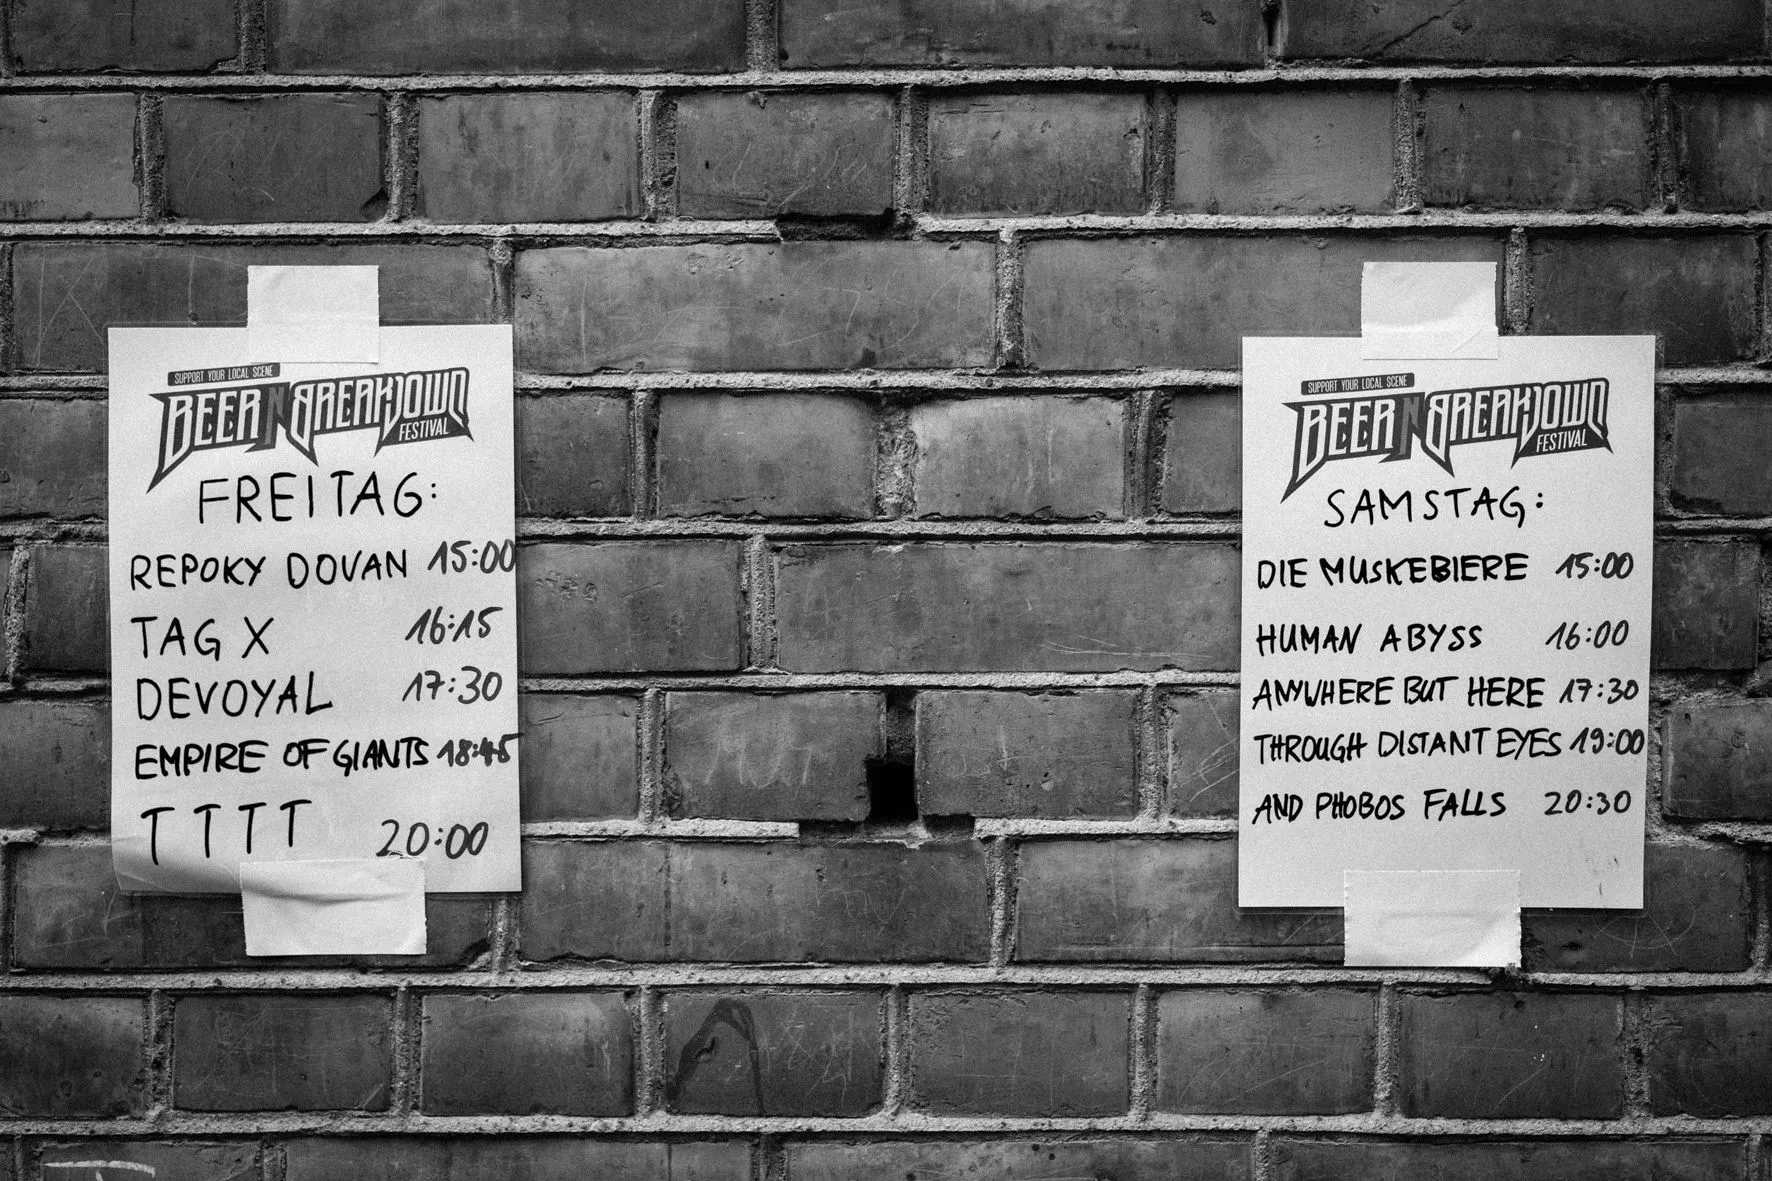 SUPPORT YOUR LOCAL SCENE
BEER N BREAKDOWN
FESTIVAL
FREITAG:
REPOKY DOVAN 15:00
TAG X 16:15
DEVOYAL 17:30
EMPIRE OF GIANTS 18:45
T T T T 20:00
SUPPORT YOUR LOCAL SCENE
BEER N BREAKDOWN
FESTIVAL
SAMSTAG:
DIE MUSKEBIERE 15:00
HUMAN ABYSS 16:00
ANYWHERE BUT HERE 17:30
THROUGH DISTANT EYES 19:00
AND PHOBOS FALLS 20:30